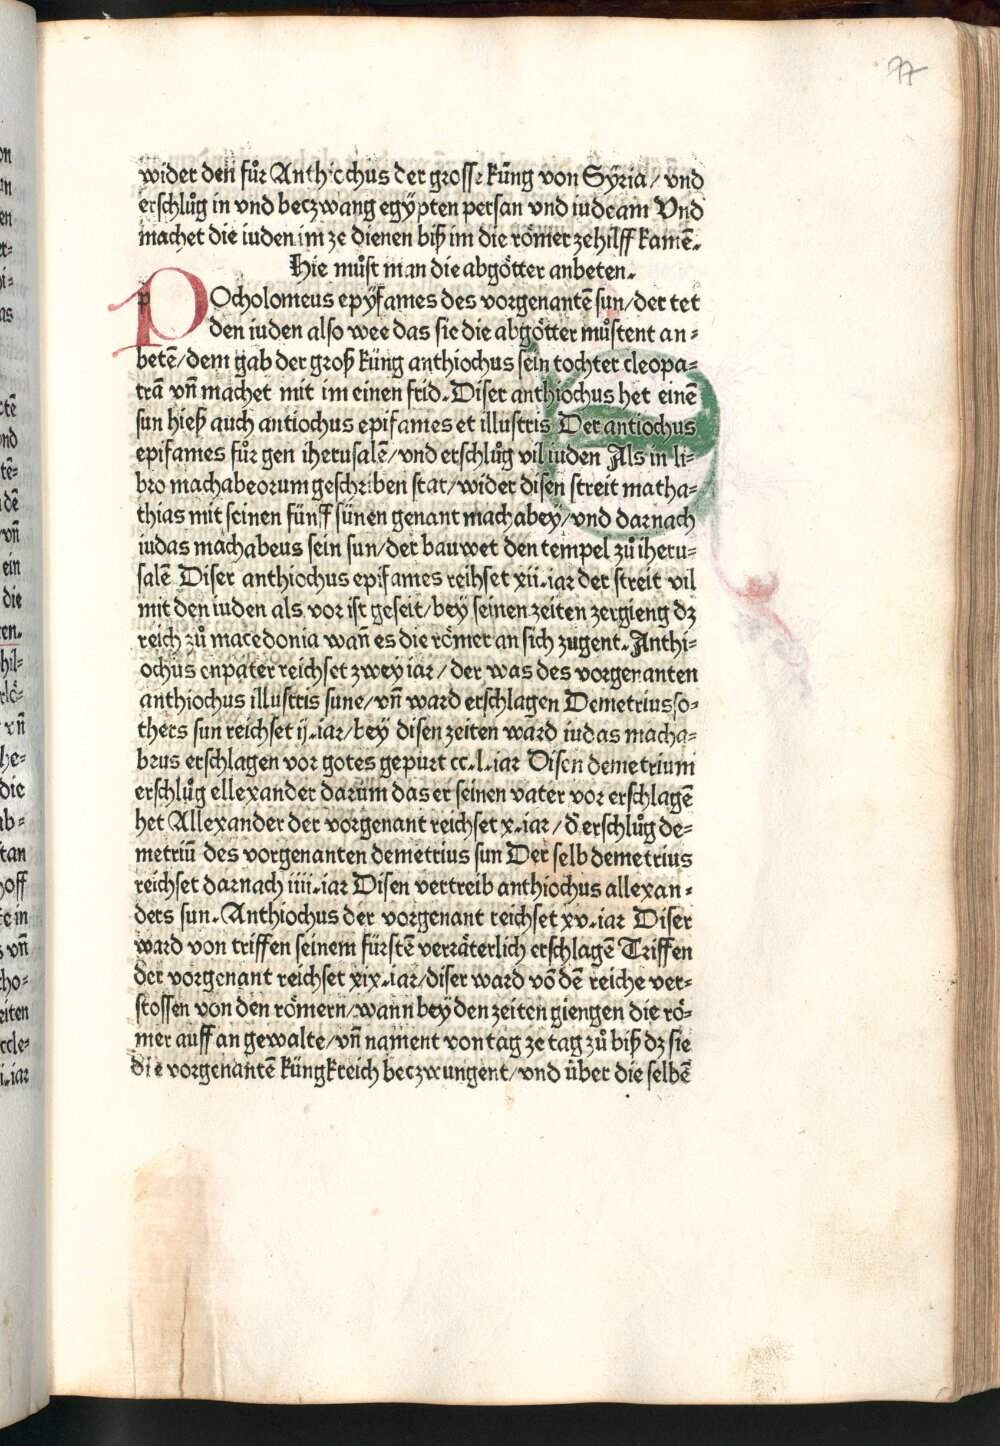 77
wider den fuͦr Anthicchus der grosse küng von Sÿria / vnd
erschluͦg in vnd beczwang egÿpten persan vnd iudeam Vnd
machet die iuden im ze dienen biß im die roͤmer ze hilff kamē.
Hie muͦst man die abgoͤtter anbeten.
POcholomeus epÿfames des vorgenantē sun / der tet
den iuden also wee das sie die abgoͤtter muͦstent an⸗
betē / dem gab der groß küng anthiochus sein tochter cleopa⸗
trā vn̄ machet mit im einen frid. Diser anthiochus het einē
sun hieß auch antiochus epifames et illustris Der antiochus
epifames fuͦr gen iherusalē / vnd erschluͦg vil iuden Als in li⸗
bro machabeorum geschriben stat / wider disen streit matha⸗
thias mit seinen fünff sünen genant machabeÿ / vnd darnach
iudas machabeus sein sun / der bauwet den tempel zuͦ iheru⸗
salē Diser anthiochus epifames reihset xii. iar der streit vil
mit den iuden als vor ist geseit / beÿ seinen zeiten zergieng dz
reich zuͦ macedonia wan̄ es die roͤmer an sich zugent. Anthi⸗
ochus enpater reichset zweÿ iar / der was des vorgenanten
anthiochus illustris sune / vn̄ ward erschlagen Demetrius so⸗
thers sun reichset ij. iar / beÿ disen zeiten ward iudas macha⸗
brus erschlagen vor gotes gepurt cc. l. iar Disen demetrium
erschluͦg ellexander darum das er seinen vater vor erschlagē
het Allexander der vorgenant reichset x. iar / d̄ erschluͦg de⸗
metriū des vorgenanten demetrius sun Der selb demetrius
reichset darnach iiii. iar Disen vertreib anthiochus allexan⸗
ders sun. Anthiochus der vorgenant reichset xv. iar Diser
ward von triffen seinem fürstē verräterlich erschlagē Triffen
der vorgenant reichset xix. iar / diser ward vō dē reiche ver⸗
stossen von den roͤmern / wann beÿ den zeiten giengen die roͤ⸗
mer auff an gewalte / vn̄ nament von tag ze tag zuͦ biß dz sie
die vorgenantē küngkreich beczwungent / vnd über die selbē